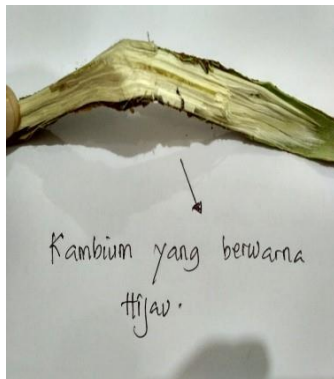 Kambium yang berwarna
Hijau.